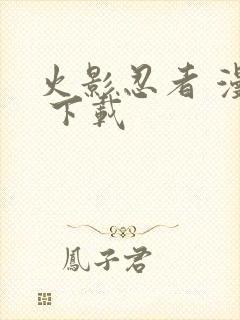 火影忍者 漫
下載
鳳子君